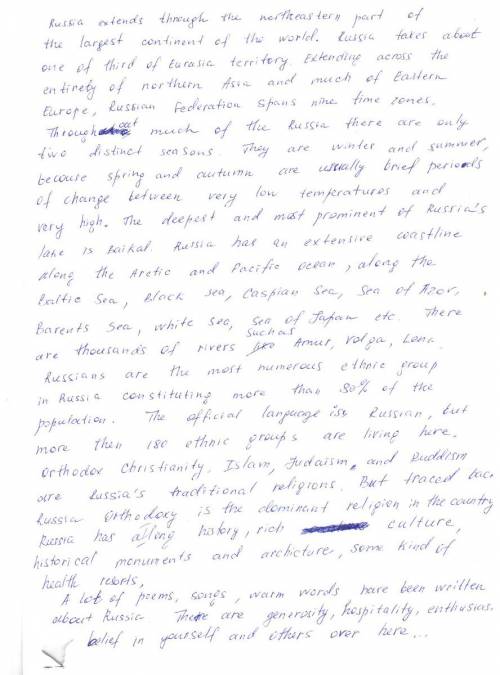 Russia extends through the northeastern part of
the largest continent of the world. Russia takes about
one of third of Eurasia territory. Extending across the
entirety of northern Asia and much of Eastern
Europe, Russian Federation spans nine time zones.
Throughout much of the Russia there are only
two distinct seasons. They are winter and summer,
because spring and autumn are usually brief periods
of change between very low temperatures and
very high. The deepest and most prominent of Russia's
lake is Baikal. Russia has an extensive coastline
along the Arctic and Pacific Ocean, along the
Baltic Sea, Black sea, Caspian Sea, Sea of Azov,
Barents Sea, White Sea, Sea of Japan etc. There
are thousands of rivers such as Amur, Volga, Lena.
Russians are the most numerous ethnic group
in Russia constituting more than 80% of the
population. The official language is Russian, but
more then 180 ethnic groups are living here.
Orthodox Christianity, Islam, Judaism, and Buddism
are Russia's traditional religions. But traced
Russia Orthodoxy is the dominant religion in the country
Russia has a long history, rich culture,
historical monuments and archicture, some kind of
health resorts.
A lot of poems, songs, warm words have been written
about Russia There are generosity, hospitality, enthusias
belief in yourself and others over here...